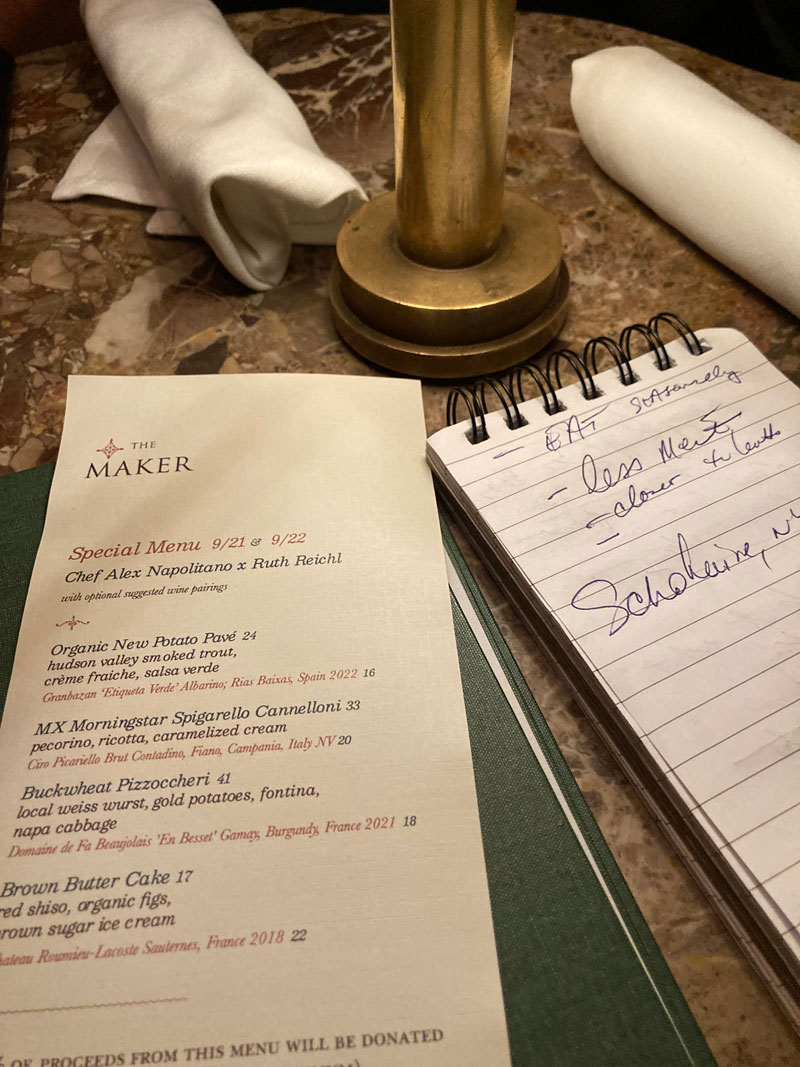 THE
MAKER
Special Menu 9/21 & 9/22
Chef Alex Napolitano x Ruth Reichl
with optional suggested wine pairings
Organic New Potato Pavé 24
hudson valley smoked trout,
crème fraiche, salsa verde
Granbazan 'Etiqueta Verde' Albarino; Rias Baixas, Spain 2022 16
MX Morningstar Spigarello Cannelloni 33
pecorino, ricotta, caramelized cream
Ciro Picariello Brut Contadino, Fiano, Campania, Italy NV 20
Buckwheat Pizzoccheri 41
local weiss wurst, gold potatoes, fontina,
napa cabbage
Domaine de Fa Beaujolais 'En Besset' Gamay, Burgundy, France 2021 18
Brown Butter Cake 17
red shiso, organic figs,
brown sugar ice cream
Chateau Roumieu-Lacoste Sauternes, France 2018 22
% OF PROCEEDS FROM THIS MENU WILL BE DONATED
- EAT seasonally
- less Meat
- closer to